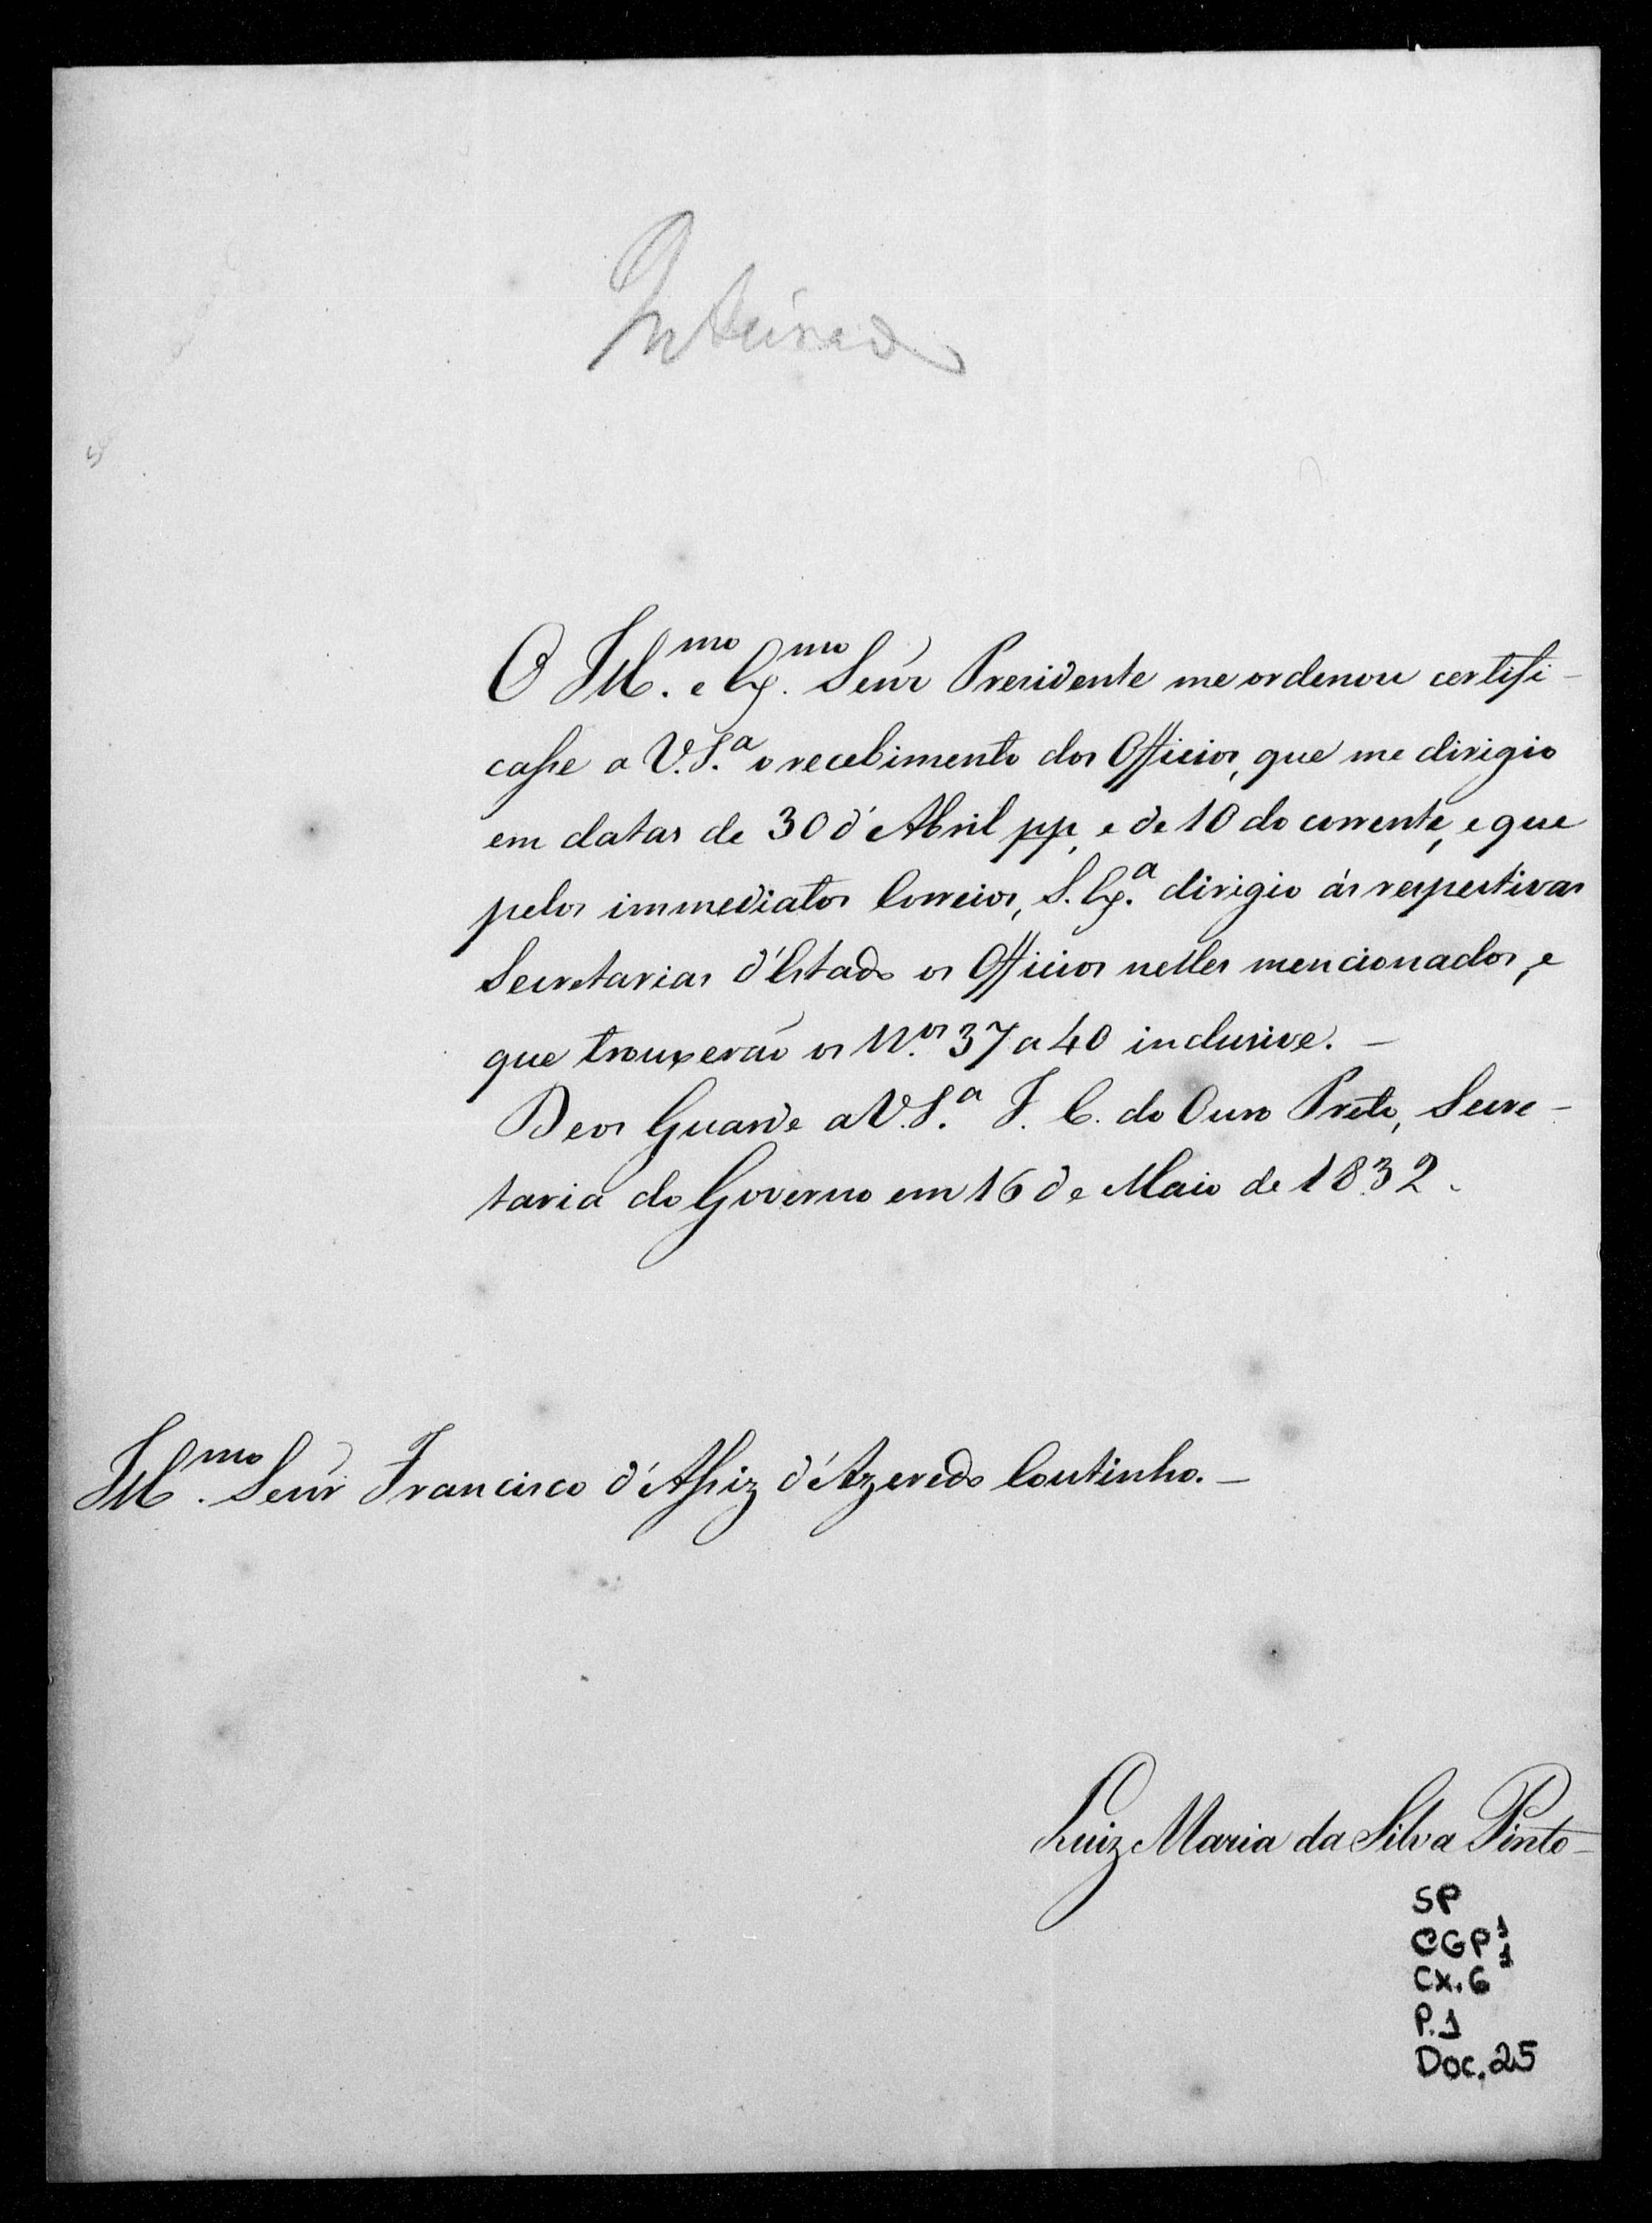 Inteirado
O Ill.mo e Ex.mo Senr Presidente me ordenou certifi-
casse a V.S.a o recebimento dos Officios, que me dirigio
em datas de 30 d'Abril pp, e de 10 do corrente, e que
pelos immediatos Correios, S. Ex.a dirigio ás respectivas
Secretarias d'Estado os Officios nelles mencionados, e
que trouxerão os N.os 37 a 40 inclusive. -
Deos Guarde a V.S.a I. C. do Ouro Preto, Secre-
taria do Governo em 16 de Maio de 1832.
Ill.mo Senr Francisco d'Assiz d'Azeredo Coutinho. -
Luiz Maria da Silva Pinto -
SP
CGP 1
1
Cx. 6
P. 1
Doc. 25